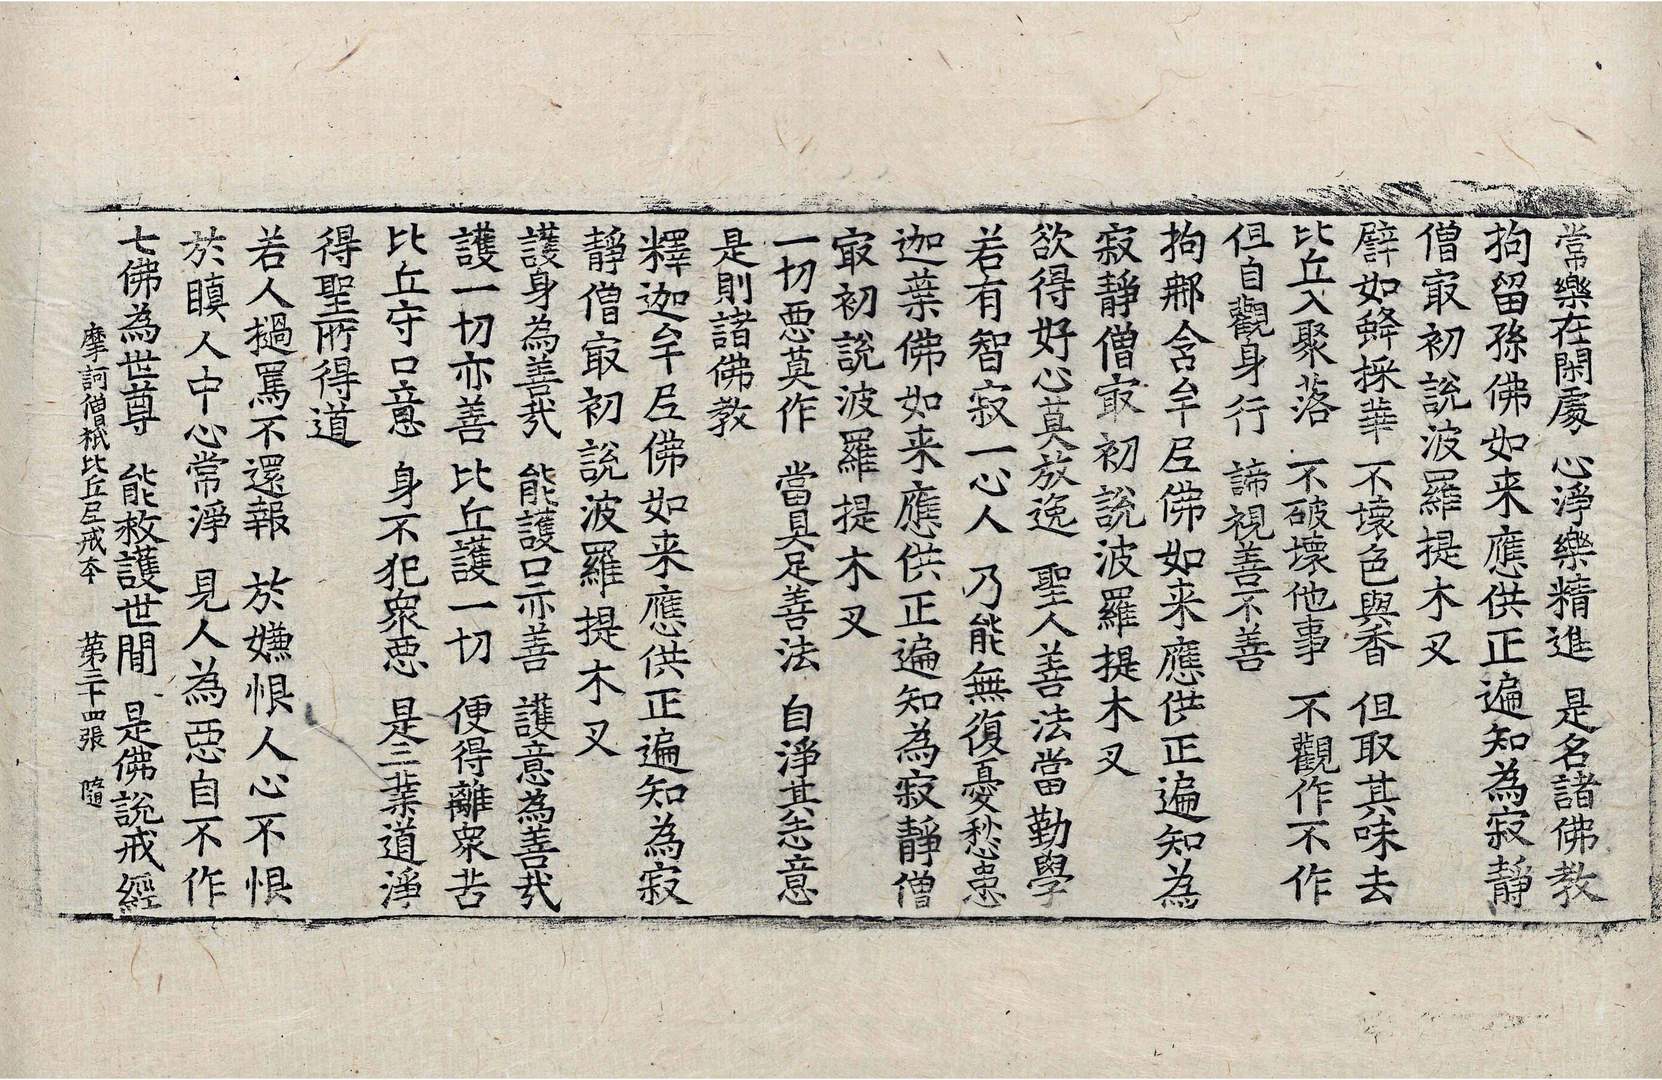 常樂在閑處　心淨樂精進　是名諸佛教
拘留孫佛如来應供正遍知為寂靜
僧㝡初說波羅提木叉
譬如蜂採華　不壞色與香　但取其味去
比丘入聚落　不破壞他事　不觀作不作
但自觀身行　諦視善不善
拘那含牟尼佛如来應供正遍知為
寂靜僧㝡初說波羅提木叉
欲得好心莫放逸　聖人善法當勤學
若有智寂一心人　乃能無復憂愁患
迦葉佛如来應供正遍知為寂靜僧
㝡初說波羅提木叉
一切惡莫作　當具足善法　自淨其志意
是則諸佛教
釋迦牟尼佛如来應供正遍知為寂
靜僧㝡初說波羅提木叉
護身為善哉　能護口亦善　護意為善哉
護一切亦善　比丘護一切　便得離衆苦
比丘守口意　身不犯衆惡　是三業道淨
得聖所得道
若人撾罵不還報　於嫌恨人心不恨
於瞋人中心常淨　見人為惡自不作
七佛為世尊　能救護世間　是佛說戒經
摩訶僧祇比丘尼戒本　第三十四張　隨